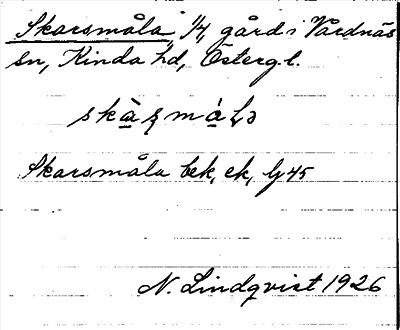 Skarsmåla, 1/4, gård i Vårdnäs
sn, Kinda hd, Östergl.
Skarsmåla bek, ek, lg 45
N. Lindqvist 1926